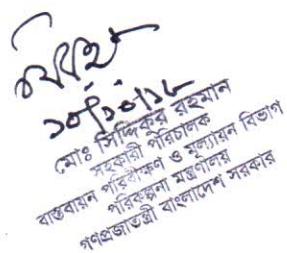 ১০/১০/১৮
মোঃ সিদ্দিকুর রহমান
সহকারী পরিচালক
বাস্তবায়ন পরিবীক্ষণ ও মূল্যায়ন বিভাগ
পরিকল্পনা মন্ত্রণালয়
গণপ্রজাতন্ত্রী বাংলাদেশ সরকার